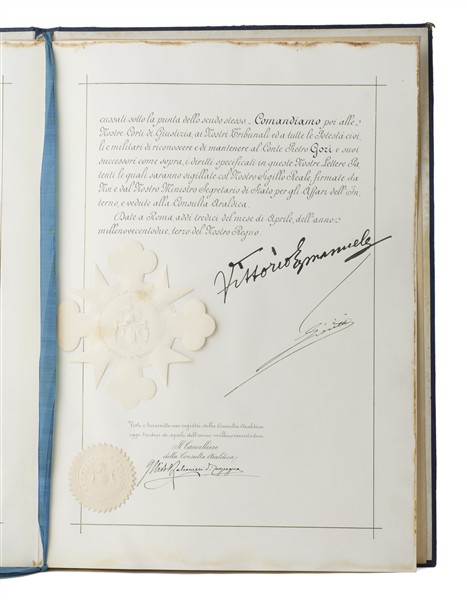 cussati sotto la punta dello scudo stesso. Comandiamo poi alle
Nostre Corti di Giustizia, ai Nostri Tribunali ed a tutte le Potestà civi-
li e militari di riconoscere e di mantenere al Conte Pietro Gori e suoi
successori come sopra, i diritti specificati in queste Nostre Lettere Pa-
tenti le quali saranno sigillate col Nostro Sigillo Reale, firmate da
Noi e dal Nostro Ministro Segretario di Stato per gli Affari dell'In-
terno, e vedute alla Consulta Araldica.
Date a Roma, addì tredici del mese di Aprile, dell'anno
millenovecentodue, terzo del Nostro Regno.
Vittorio Emanuele
Giolitti
Viste e trascritte nei registri della Consulta Araldica
oggi tredici di aprile dell'anno millenovecentodue
Il Cancelliere
della Consulta Araldica